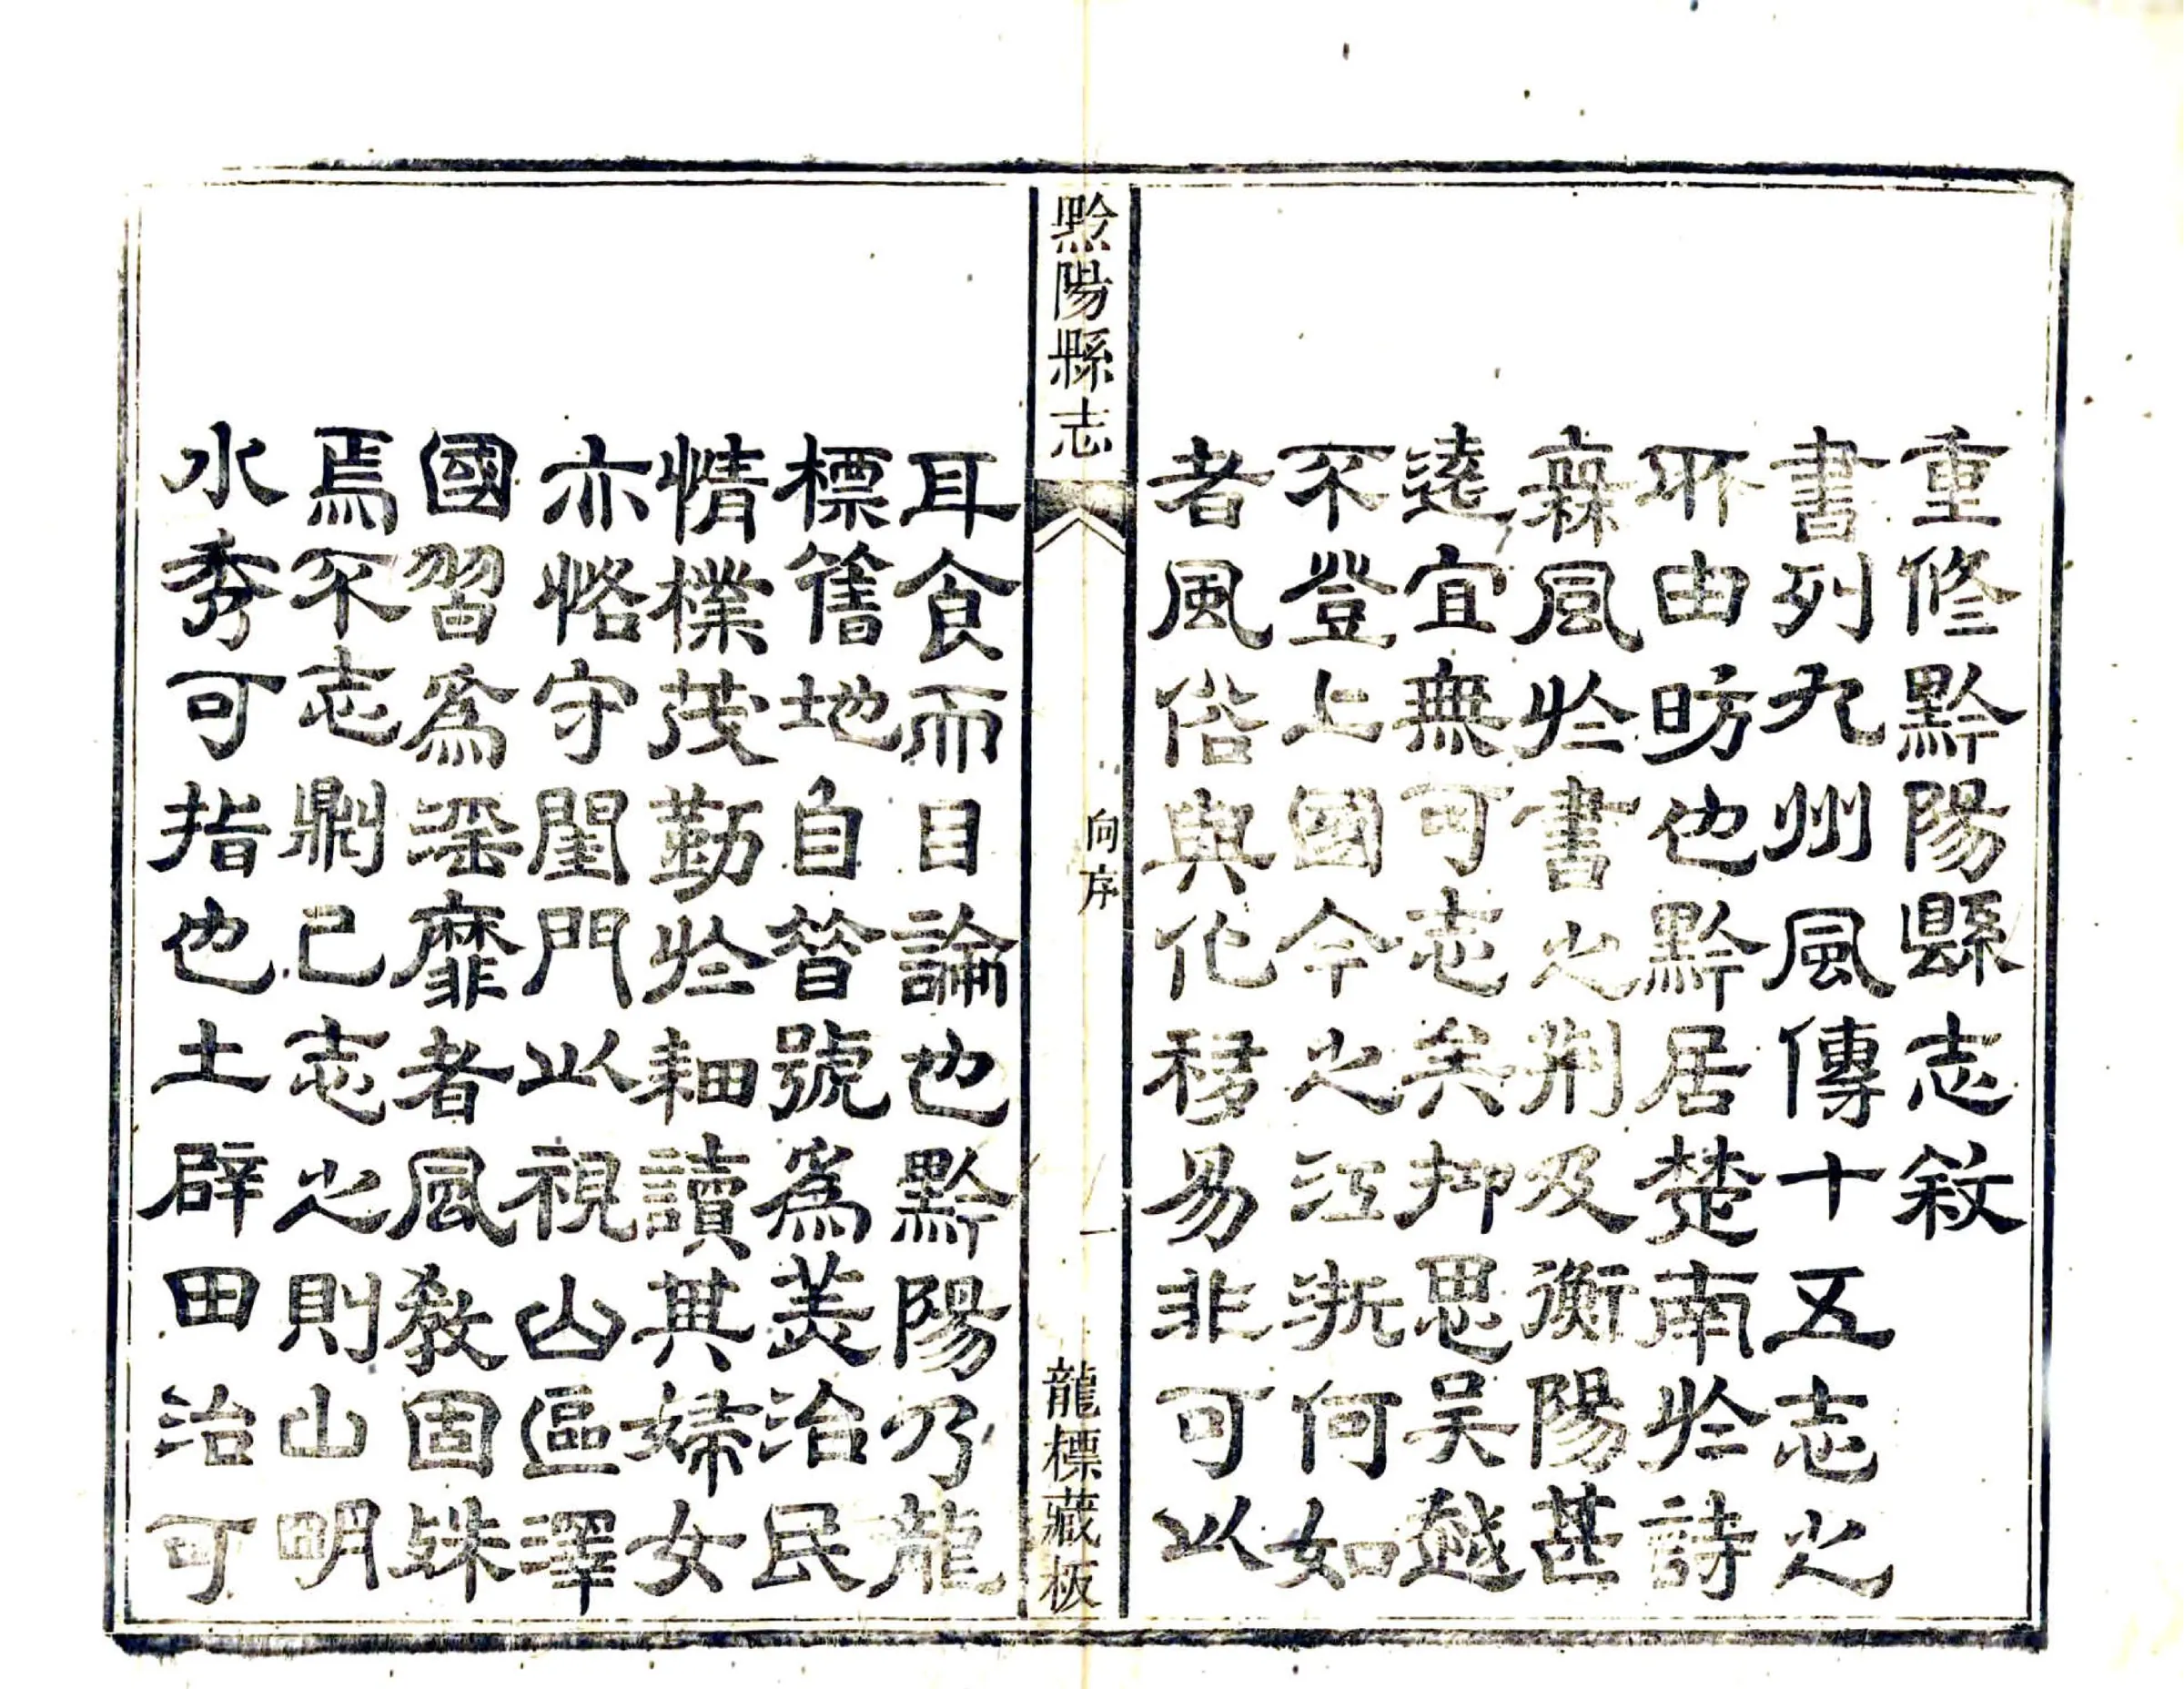 重修黔陽縣志敘
書列九州風傳十五志之
所由昉也黔居楚南於詩
無風於書之荊及衡陽甚
遠宜無可志矣抑思吳越
不登上國今之江浙何如
者風俗與化移易非可以
黔陽縣志
向序
一
龍標藏板
耳食而目論也黔陽乃龍
標舊地自昔號為美治民
情樸茂勤於耕讀其婦女
亦恪守閨門以視山區澤
國習為淫靡者風教固殊
焉不志則已志之則山明
水秀可指也土辟田治可